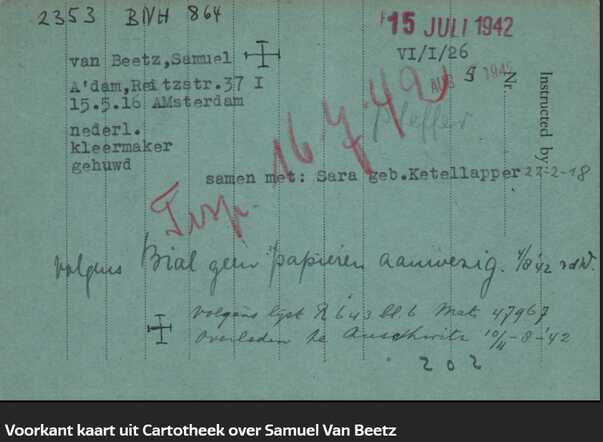 2353 BNH 864
15 JULI 1942
van Beetz,Samuel
VI/I/26
A'dam,Reitzstr.37 I
AUG 1942
15.5.16 AMsterdam
Nr.
Instructed by
nederl.
Pfeffer
kleermaker
gehuwd
16/7 42
samen met: Sara geb.Ketellapper 27-2-18
Trsp.
volgens Bial geen papieren aanwezig. 4/8 '42 v.d.W.
volgens lijst R 643 bl.6 Mat. 47967
overleden te Auschwitz 10/4-8-'42
202
Voorkant kaart uit Cartotheek over Samuel Van Beetz